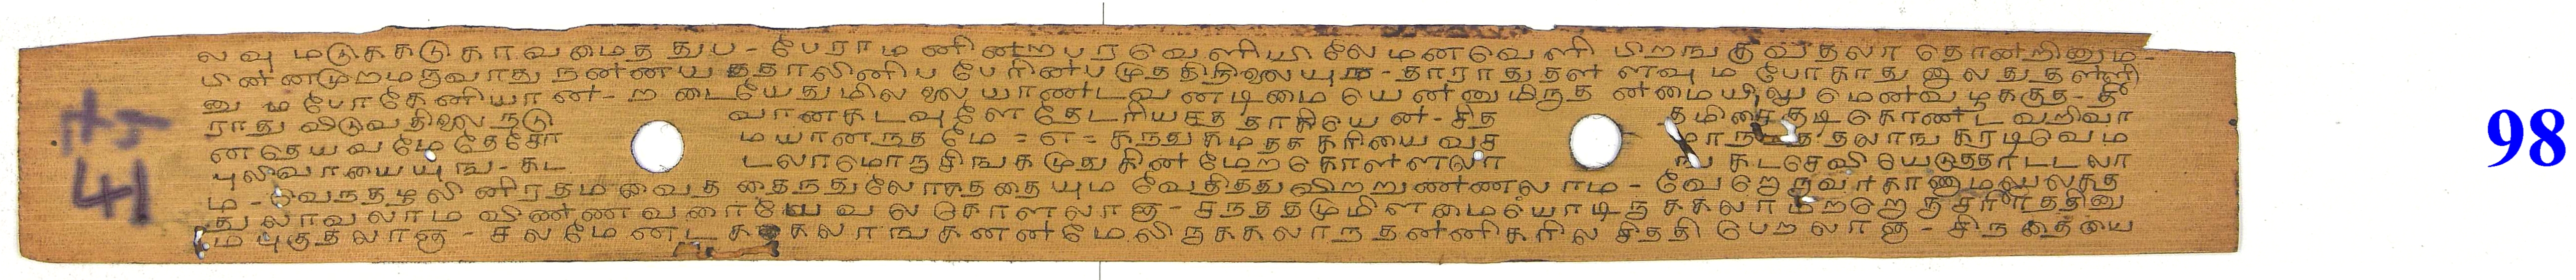 லவு மடுககடுகாவமைத துப - பேராமனினறபரவெளியிலேமனவெளி பிறஙகுவதலா தொனறினும -
பினனமுறமருவாது நனனய ததாலினிப பேரினபமுததிநிலையும - தாராதுதள ளவும போகாது னலதுதளளி
னும போகேனியான - ற டையேதுமிலலையாணடவனடிமை யெனனுமிருத னமையிலுமெனவழககுத - தீ
ராது விடுவதிலலை நடு வானகடவுளேதேடரியசத தாகியென - சித தமிசைகுடிகொணட வறிவா
னதெயவமேதேசோ மயானநதமே = எ = கநதுகமதககரியை வச மாநடததலாங கரடிவெம
புலிவாயையுங - கட டலாமொருசிஙகமுதுகினமேறகொளளலா ங கடசெவி யெடுததாடடலா
ம - வெநதழலினிரதமவைத தைநதுலோகததையும வேதிததுவிறறுணணலாம - வேறொருவர்காணாமலுலகத
துலாவலாம விணணவரையேவலகொளலாஞ - சநததமுமிளமையோடிருககலாமறறொருசரீரததினு
ம புகுதலாஞ - சலமேனடககலாஙகனனமேலிருககலாநதனனிகரில சிததி பெறலாஞ - சிநதையை
41
98